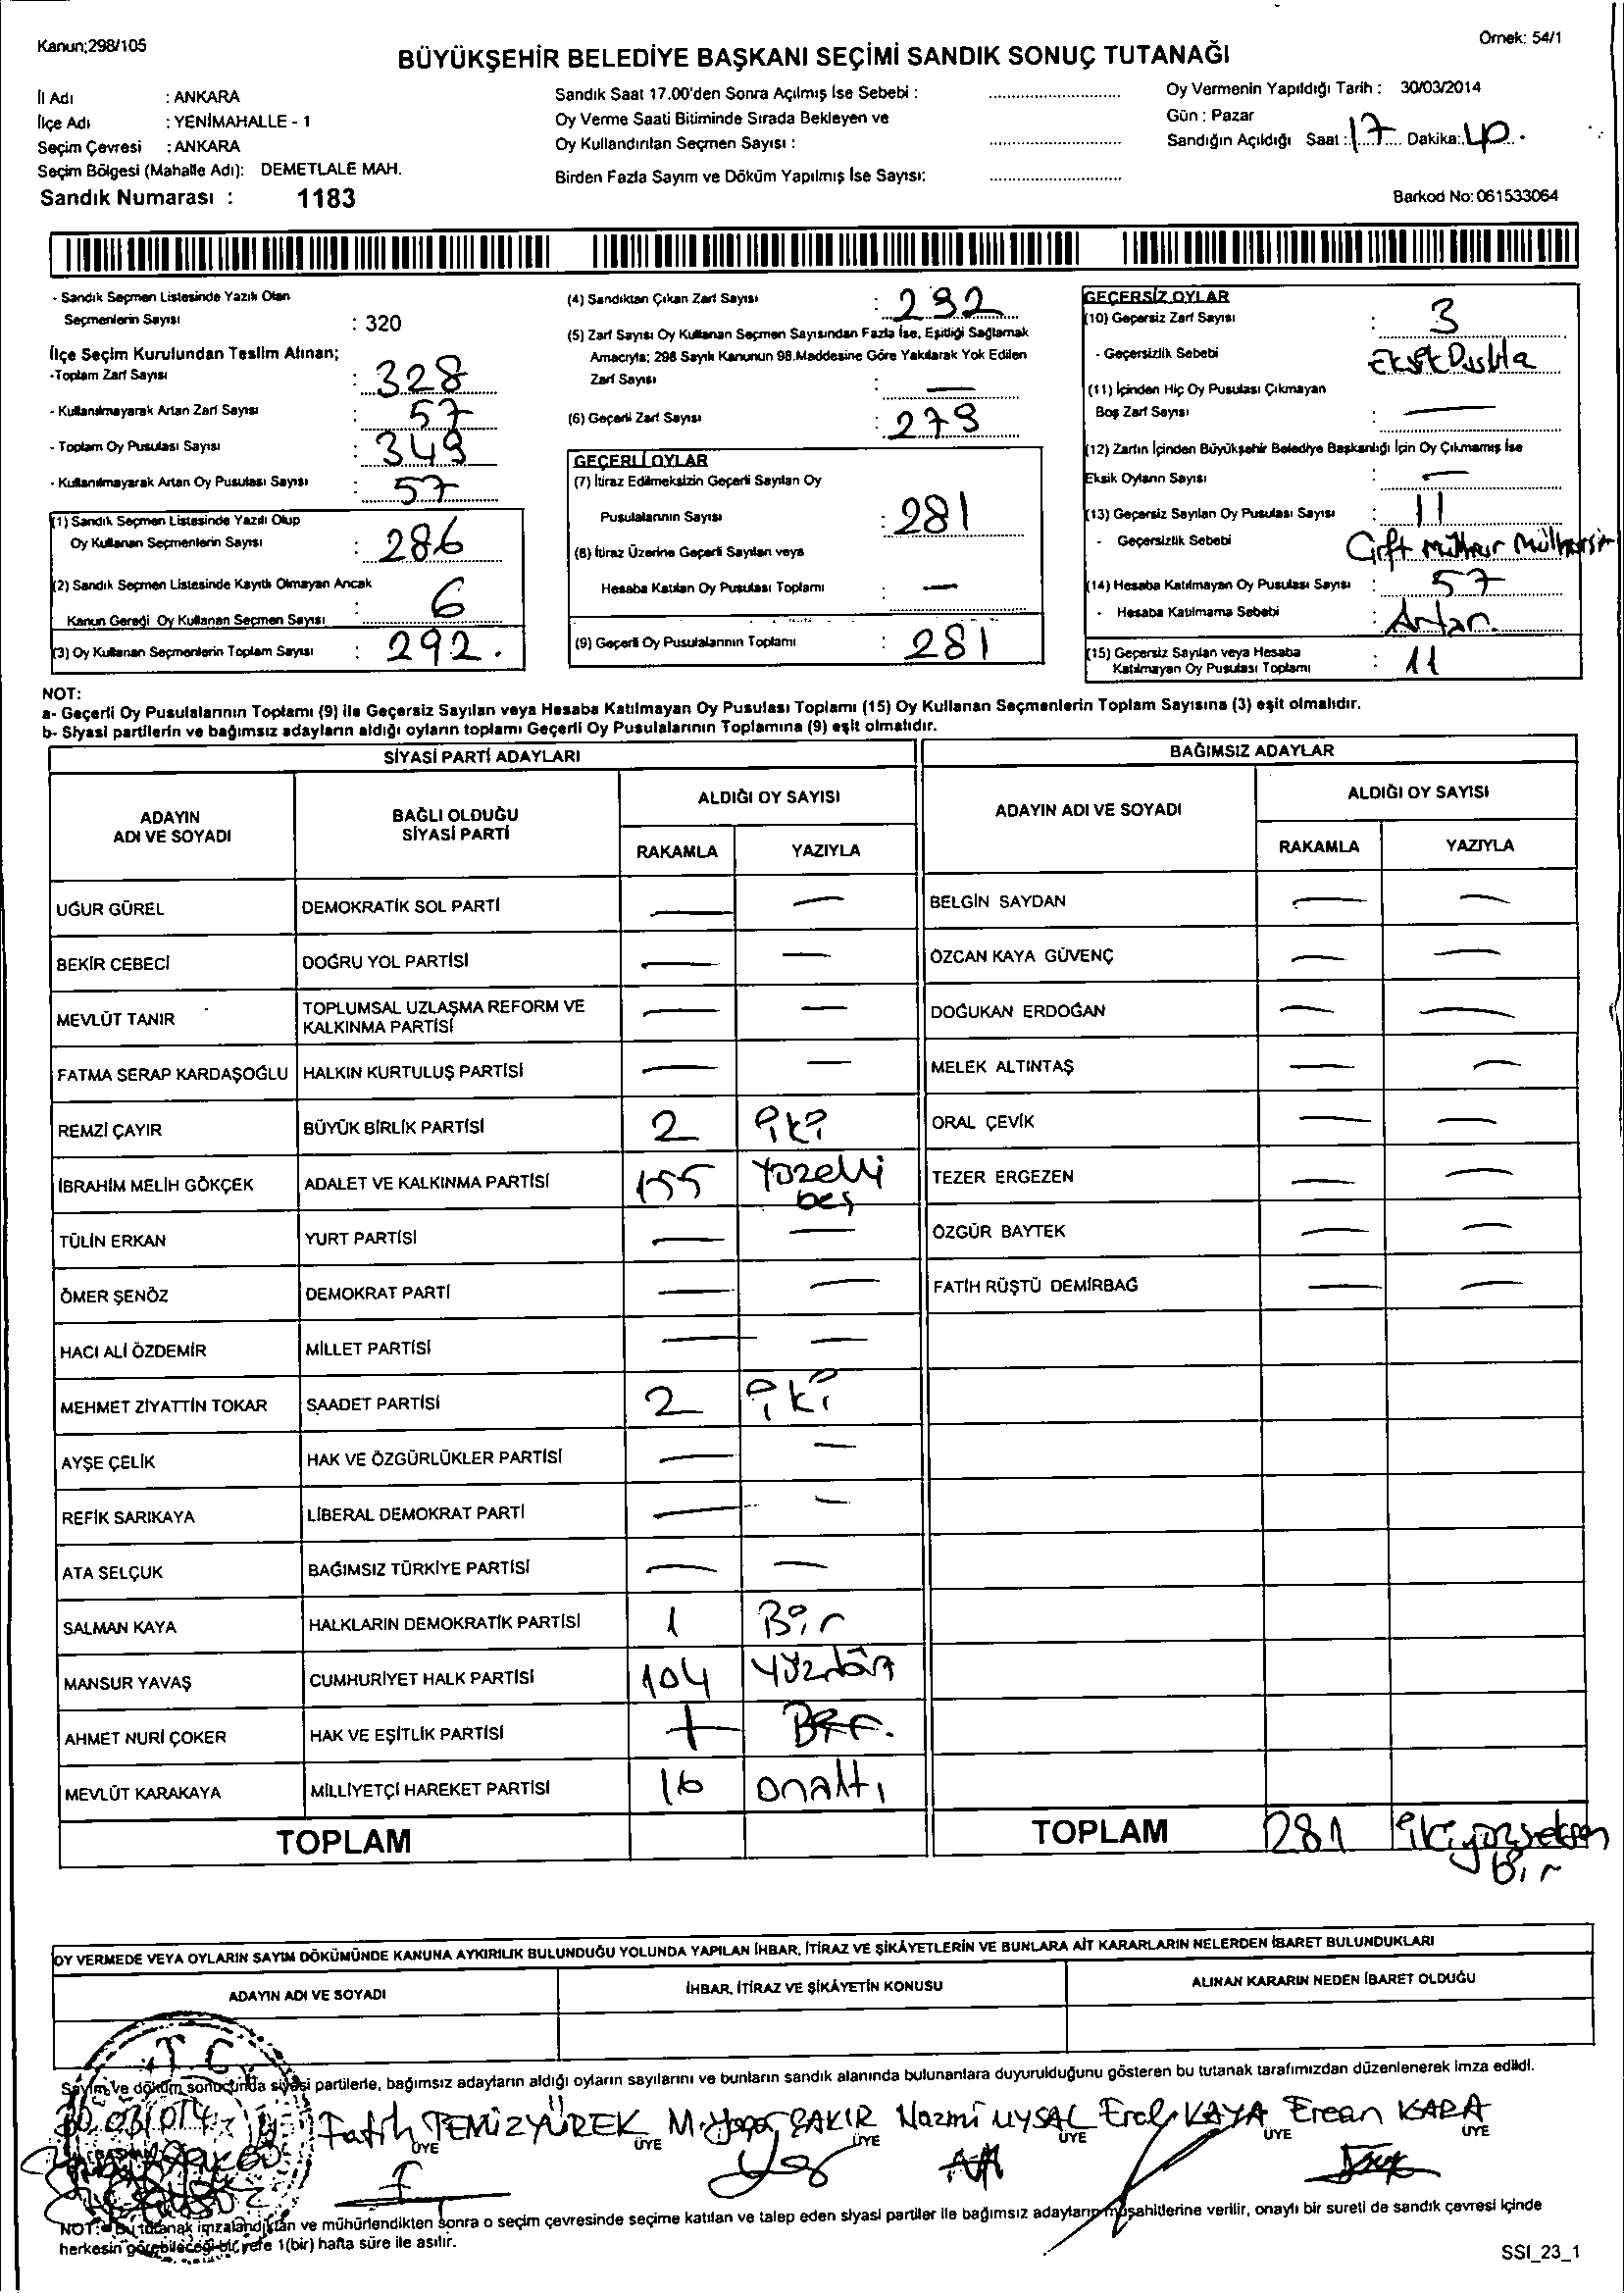 Kanun;298/105
Örnek: 54/1
BÜYÜKŞEHİR BELEDİYE BAŞKANI SEÇİMİ SANDIK SONUÇ TUTANAĞI
İl Adı : ANKARA
İlçe Adı : YENİMAHALLE - 1
Seçim Çevresi : ANKARA
Seçim Bölgesi (Mahalle Adı): DEMETLALE MAH.
Sandık Numarası : 1183
Sandık Saat 17.00'den Sonra Açılmış İse Sebebi :
Oy Verme Saati Bitiminde Sırada Bekleyen ve
Oy Kullandırılan Seçmen Sayısı :
Birden Fazla Sayım ve Döküm Yapılmış İse Sayısı:
Oy Vermenin Yapıldığı Tarih : 30/03/2014
Gün : Pazar
Sandığın Açıldığı Saat : 17 Dakika: 40.
Barkod No: 061533064
- Sandık Seçmen Listesinde Yazılı Olan
Seçmenlerin Sayısı : 320
İlçe Seçim Kurulundan Teslim Alınan;
-Toplam Zarf Sayısı : 328
- Kullanılmayarak Artan Zarf Sayısı : 57
- Toplam Oy Pusulası Sayısı : 349
- Kullanılmayarak Artan Oy Pusulası Sayısı : 57
(1) Sandık Seçmen Listesinde Yazılı Olup
Oy Kullanan Seçmenlerin Sayısı : 286
(2) Sandık Seçmen Listesinde Kayıtlı Olmayan Ancak
Kanun Gereği Oy Kullanan Seçmen Sayısı : 6
(3) Oy Kullanan Seçmenlerin Toplam Sayısı : 292.
(4) Sandıktan Çıkan Zarf Sayısı : 292
(5) Zarf Sayısı Oy Kullanan Seçmen Sayısından Fazla İse, Eşitliği Sağlamak
Amacıyla; 298 Sayılı Kanunun 98.Maddesine Göre Yakılarak Yok Edilen
Zarf Sayısı : —
(6) Geçerli Zarf Sayısı : 279
GEÇERLİ OYLAR
(7) İtiraz Edilmeksizin Geçerli Sayılan Oy
Pusulalarının Sayısı : 281
(8) İtiraz Üzerine Geçerli Sayılan veya
Hesaba Katılan Oy Pusulası Toplamı : —
(9) Geçerli Oy Pusulalarının Toplamı : 281
GEÇERSİZ OYLAR
(10) Geçersiz Zarf Sayısı : 3
- Geçersizlik Sebebi
(11) İçinden Hiç Oy Pusulası Çıkmayan
Boş Zarf Sayısı : —
(12) Zarfın İçinden Büyükşehir Belediye Başkanlığı İçin Oy Çıkmamış İse
Eksik Oyların Sayısı : —
(13) Geçersiz Sayılan Oy Pusulası Sayısı : 11
- Geçersizlik Sebebi Çift mühür
(14) Hesaba Katılmayan Oy Pusulası Sayısı : 57
- Hesaba Katılmama Sebebi : Artan.
(15) Geçersiz Sayılan veya Hesaba
Katılmayan Oy Pusulası Toplamı : 11
NOT:
a- Geçerli Oy Pusulalarının Toplamı (9) ile Geçersiz Sayılan veya Hesaba Katılmayan Oy Pusulası Toplamı (15) Oy Kullanan Seçmenlerin Toplam Sayısına (3) eşit olmalıdır.
b- Siyasi partilerin ve bağımsız adayların aldığı oyların toplamı Geçerli Oy Pusulalarının Toplamına (9) eşit olmalıdır.
SİYASİ PARTİ ADAYLARI
BAĞIMSIZ ADAYLAR
ADAYIN
ADI VE SOYADI
BAĞLI OLDUĞU
SİYASİ PARTİ
ALDIĞI OY SAYISI
RAKAMLA YAZIYLA
ADAYIN ADI VE SOYADI
ALDIĞI OY SAYISI
RAKAMLA YAZIYLA
UĞUR GÜREL DEMOKRATİK SOL PARTİ — — BELGİN SAYDAN — —
BEKİR CEBECİ DOĞRU YOL PARTİSİ — — ÖZCAN KAYA GÜVENÇ — —
MEVLÜT TANIR TOPLUMSAL UZLAŞMA REFORM VE KALKINMA PARTİSİ — — DOĞUKAN ERDOĞAN — —
FATMA SERAP KARDAŞOĞLU HALKIN KURTULUŞ PARTİSİ — — MELEK ALTINTAŞ — —
REMZİ ÇAYIR BÜYÜK BİRLİK PARTİSİ 2 iki ORAL ÇEVİK — —
İBRAHİM MELİH GÖKÇEK ADALET VE KALKINMA PARTİSİ 155 Yüzelli beş TEZER ERGEZEN — —
TÜLİN ERKAN YURT PARTİSİ — — ÖZGÜR BAYTEK — —
ÖMER ŞENÖZ DEMOKRAT PARTİ — — FATİH RÜŞTÜ DEMİRBAĞ — —
HACI ALİ ÖZDEMİR MİLLET PARTİSİ — —
MEHMET ZİYATTİN TOKAR SAADET PARTİSİ 2 iki
AYŞE ÇELİK HAK VE ÖZGÜRLÜKLER PARTİSİ — —
REFİK SARIKAYA LİBERAL DEMOKRAT PARTİ — —
ATA SELÇUK BAĞIMSIZ TÜRKİYE PARTİSİ — —
SALMAN KAYA HALKLARIN DEMOKRATİK PARTİSİ 1 Bir
MANSUR YAVAŞ CUMHURİYET HALK PARTİSİ 104 Yüzdört
AHMET NURİ ÇOKER HAK VE EŞİTLİK PARTİSİ 1 Bir.
MEVLÜT KARAKAYA MİLLİYETÇİ HAREKET PARTİSİ 16 onaltı
TOPLAM TOPLAM 281 ikiyüzseksen
bir
OY VERMEDE VEYA OYLARIN SAYIM DÖKÜMÜNDE KANUNA AYKIRILIK BULUNDUĞU YOLUNDA YAPILAN İHBAR, İTİRAZ VE ŞİKÂYETLERİN VE BUNLARA AİT KARARLARIN NELERDEN İBARET BULUNDUKLARI
ADAYIN ADI VE SOYADI İHBAR, İTİRAZ VE ŞİKÂYETİN KONUSU ALINAN KARARIN NEDEN İBARET OLDUĞU
T.C.
Sayım ve döküm sonucunda siyasi partilerle, bağımsız adayların aldığı oyların sayılarını ve bunların sandık alanında bulunanlara duyurulduğunu gösteren bu tutanak tarafımızdan düzenlenerek imza edildi.
Fatih TEMİZYÜREK M. Yaşar ÇAKIR Nazmi UYSAL Erol KAYA Ercan KARA
ÜYE ÜYE ÜYE ÜYE ÜYE ÜYE
NOT: Bu tutanak imzalandıktan ve mühürlendikten sonra o seçim çevresinde seçime katılan ve talep eden siyasi partiler ile bağımsız adayların müşahitlerine verilir, onaylı bir sureti de sandık çevresi içinde
herkesin görebileceği bir yere 1(bir) hafta süre ile asılır.
SSI_23_1